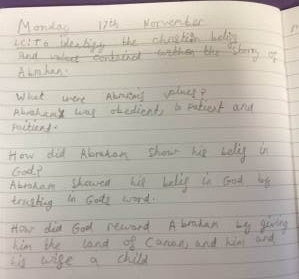 Monday 17th Norvember
LC: To identify the christian belif
and values contained within the story of
Abraham.
What were Abrahms values?
Abraham was obedient, is Patient and
Paitiend.
How did Abraham show his belif in
God?
Abraham showed his belif in God by
trusting in Gods word.
How did God reward Abraham by giving
him the land of Canan, and him and
his wife a child